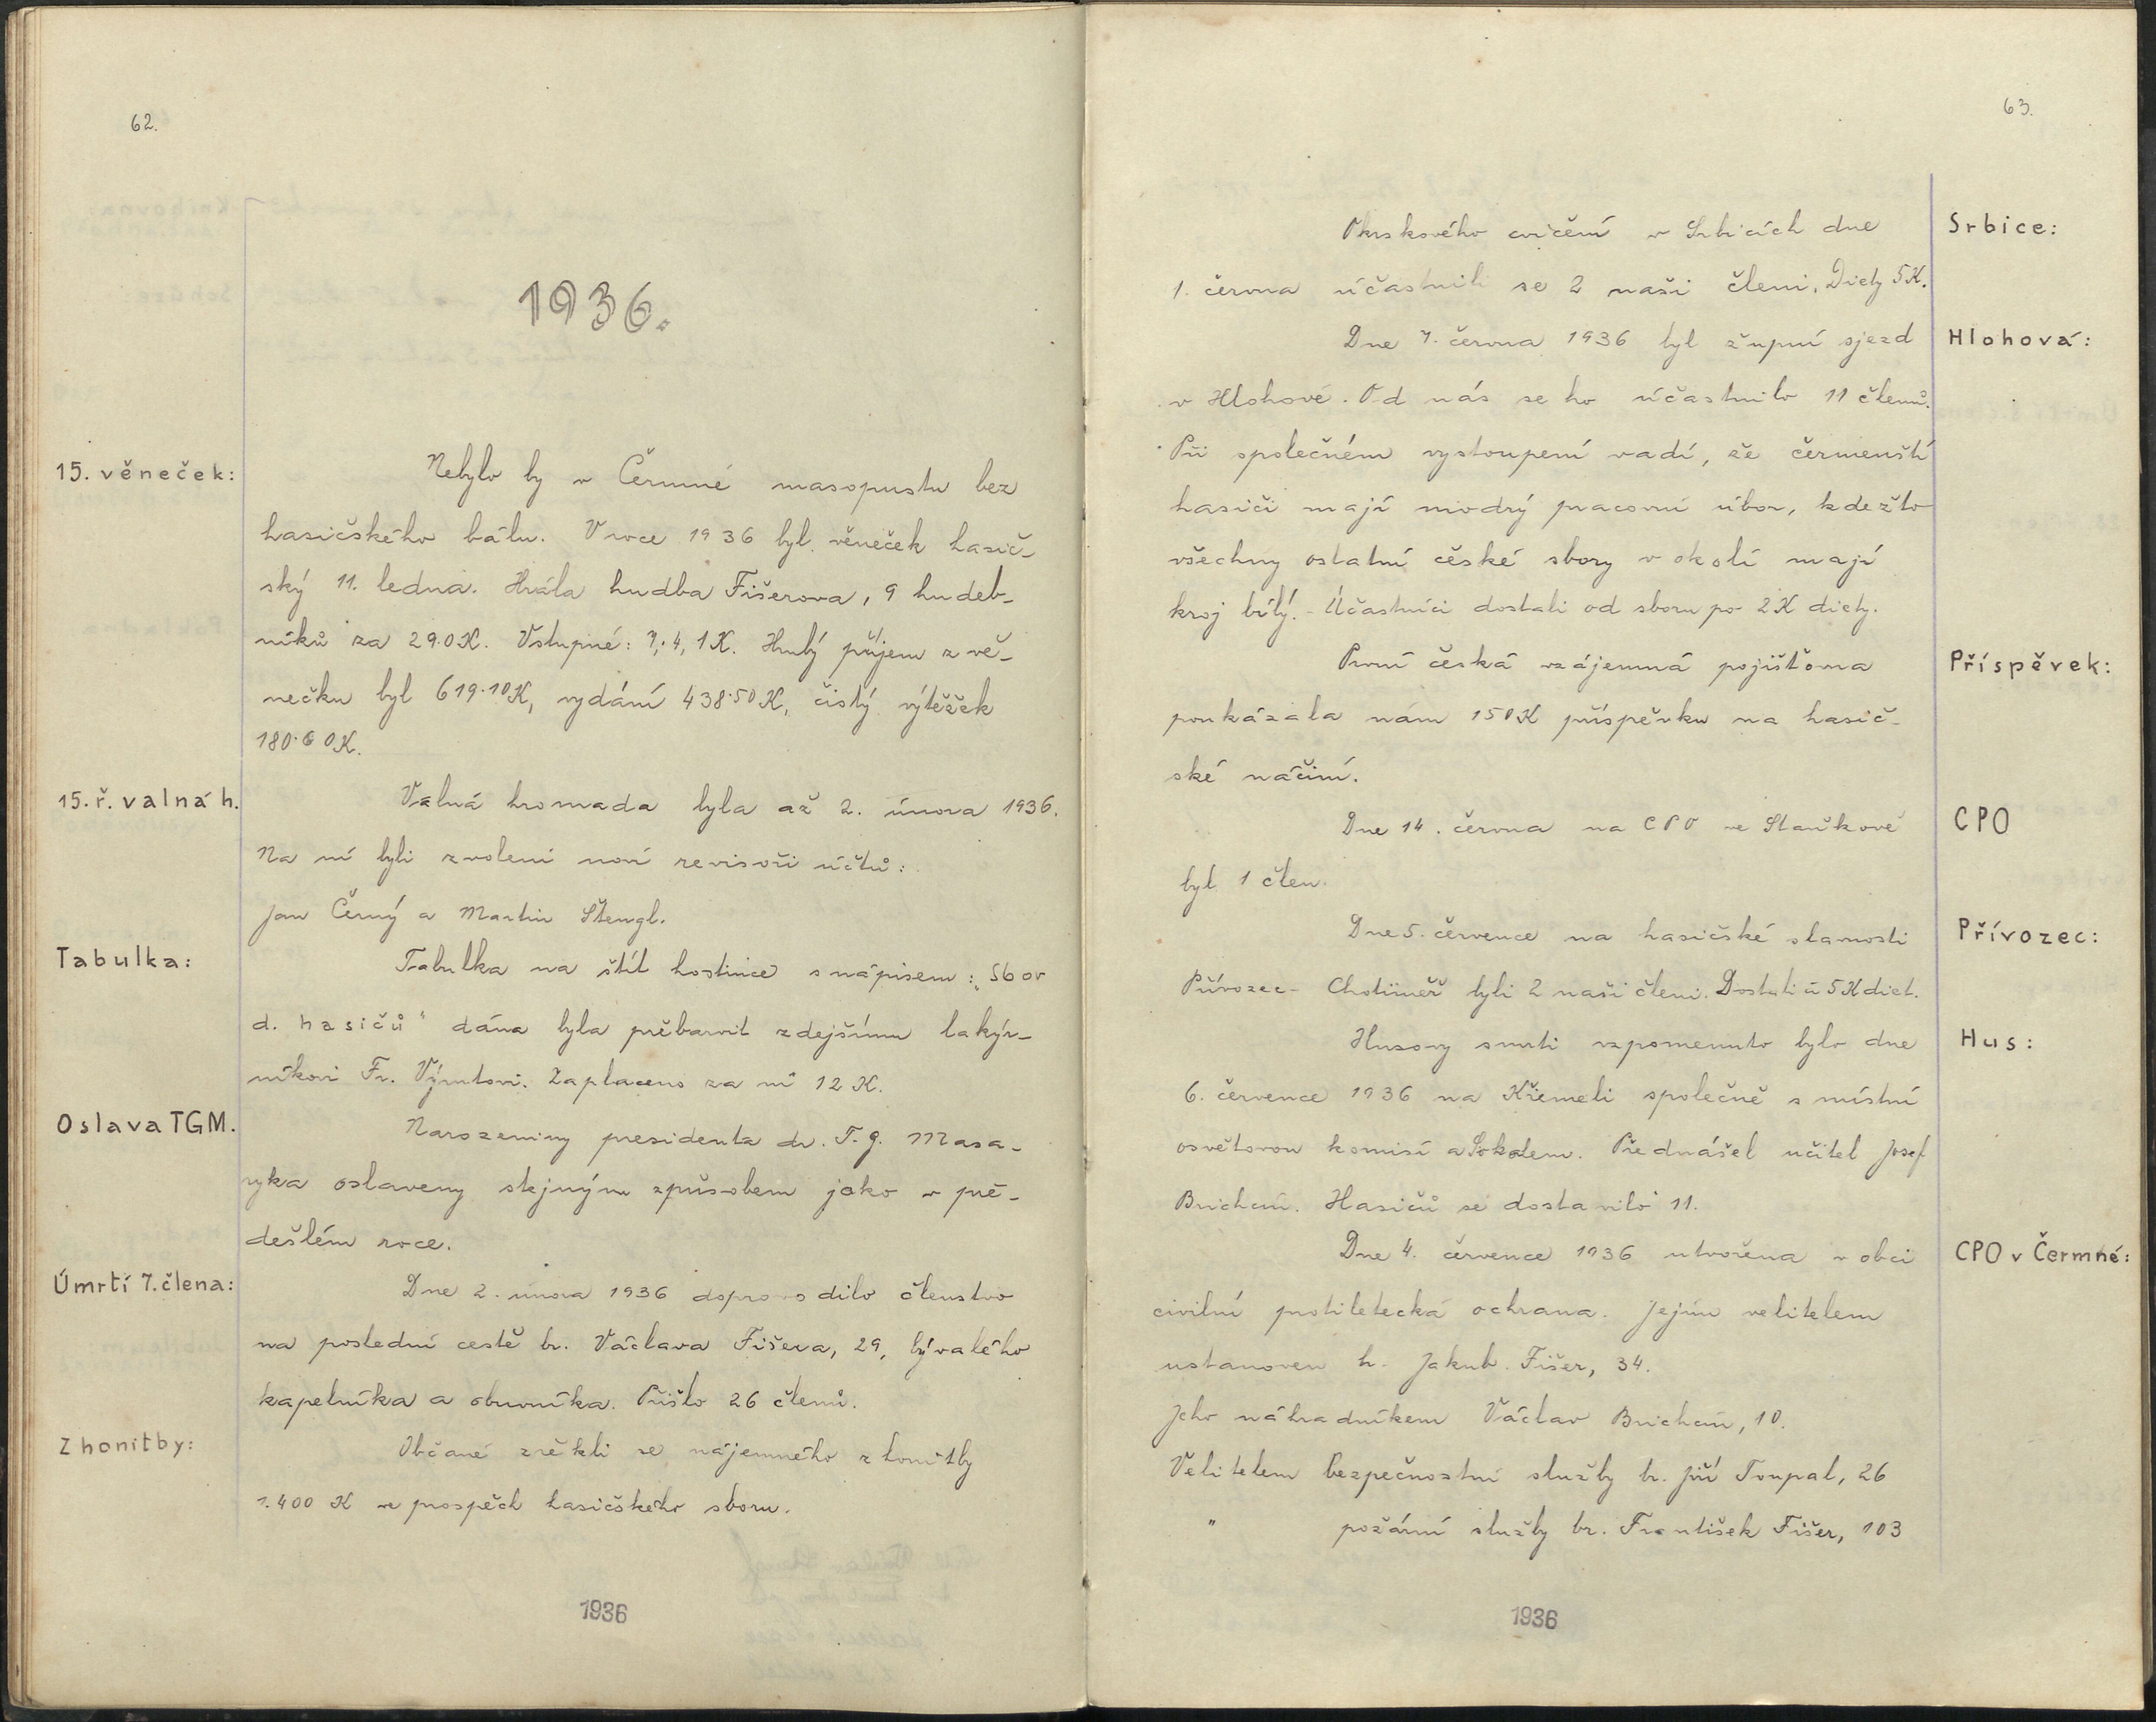 62.
1936.
15. věneček:
Nebylo by v Čermné masopustu bez
hasičského bálu. V roce 1936 byl věneček hasič-
ský 11. ledna. Hrála hudba Fišerova, 9 hudeb-
níků za 290 K. Vstupné: 7, 4, 1 K. Hrubý příjem z vě-
nečku byl 619·10 K, vydání 438·50 K, čistý výtěžek
180·60 K.
15. ř. valná h.
Valná hromada byla až 2. února 1936.
Na ní byli zvoleni noví revisoři účtů:
Jan Černý a Martin Štengl.
Tabulka:
Tabulka na štít hostince s nápisem: „Sbor
d. hasičů" dána byla přebarvit zdejšímu lakýr-
níkovi Fr. Výrutovi. Zaplaceno za ni 12 K.
Oslava TGM.
Narozeniny presidenta dr. T. G. Masa-
ryka oslaveny stejným způsobem jako v pře-
dešlém roce.
Úmrtí 7. člena:
Dne 2. února 1936 doprovodilo členstvo
na poslední cestě br. Václava Fišera, 29, bývalého
kapelníka a obuvníka. Přišlo 26 členů.
Z honitby:
Občané zřekli se nájemného z honitby
1.400 K ve prospěch hasičského sboru.
1936
63.
Srbice:
Okrskového cvičení v Srbicích dne
1. června účastnili se 2 naši členi. Diety 5 K.
Hlohová:
Dne 7. června 1936 byl župní sjezd
v Hlohové. Od nás se ho účastnilo 11 členů.
Při společném vystoupení vadí, že čermenští
hasiči mají modrý pracovní úbor, kdežto
všechny ostatní české sbory v okolí mají
kroj bílý. - Účastníci dostali od sboru po 2 K diety.
Příspěvek:
První česká vzájemná pojišťovna
poukázala nám 150 K příspěvku na hasič-
ské náčiní.
CPO
Dne 14. června na CPO ve Staňkově
byl 1 člen.
Přívozec:
Dne 5. července na hasičské slavnosti
Přívozec - Chotiměř byli 2 naši členi. Dostali à 5 K diet.
Hus:
Husovy smrti vzpomenuto bylo dne
6. července 1936 na Křemeli společně s místní
osvětovou komisí a Sokolem. Přednášel učitel Josef
Brichcín. Hasičů se dostavilo 11.
CPO v Čermné:
Dne 4. července 1936 utvořena v obci
civilní protiletecká ochrana. Jejím velitelem
ustanoven br. Jakub Fišer, 34.
Jeho náhradníkem Václav Brichcín, 10.
Velitelem bezpečnostní služby br. Jiří Toupal, 26
" požární služby br. František Fišer, 103
1936